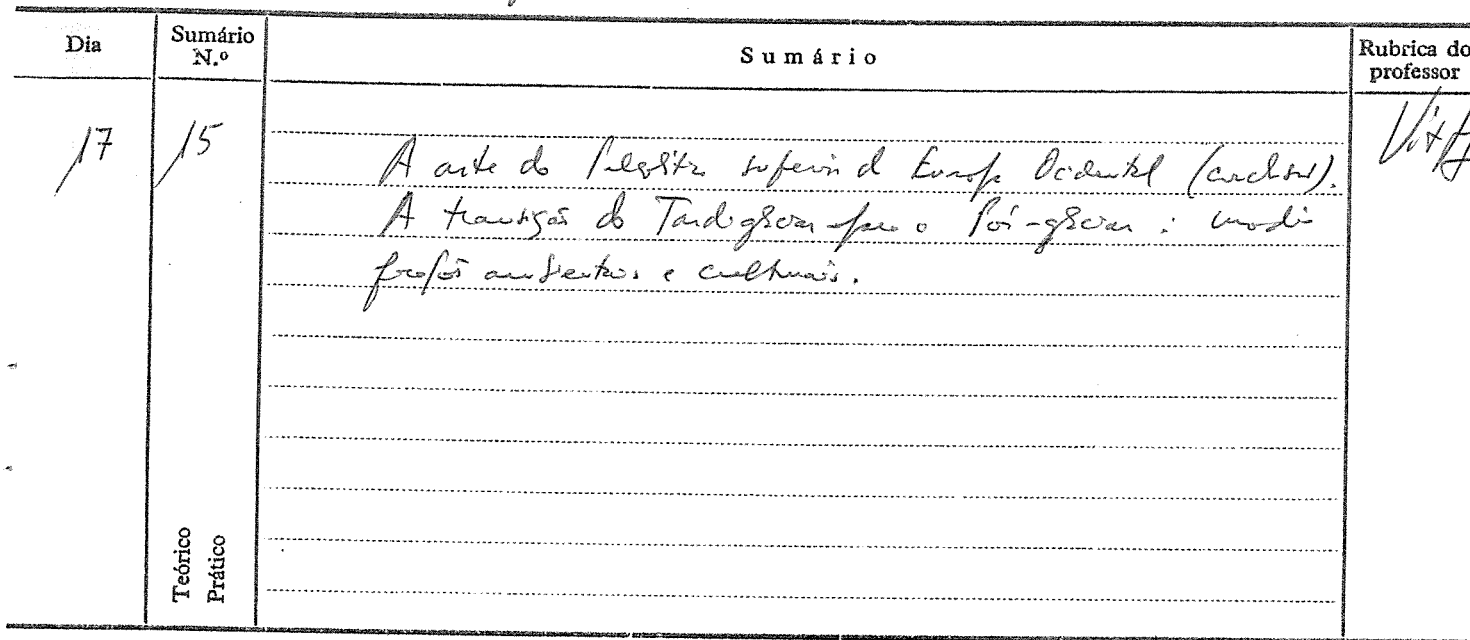 Dia
Sumário N.º
Sumário
Rubrica do professor
17
15
A arte do Paleolítico superior d Europa Ocidental (conclusão).
A transição do Tardiglaciar para o Pós-glaciar: modi-
ficações ambientais e culturais.
Teórico
Prático